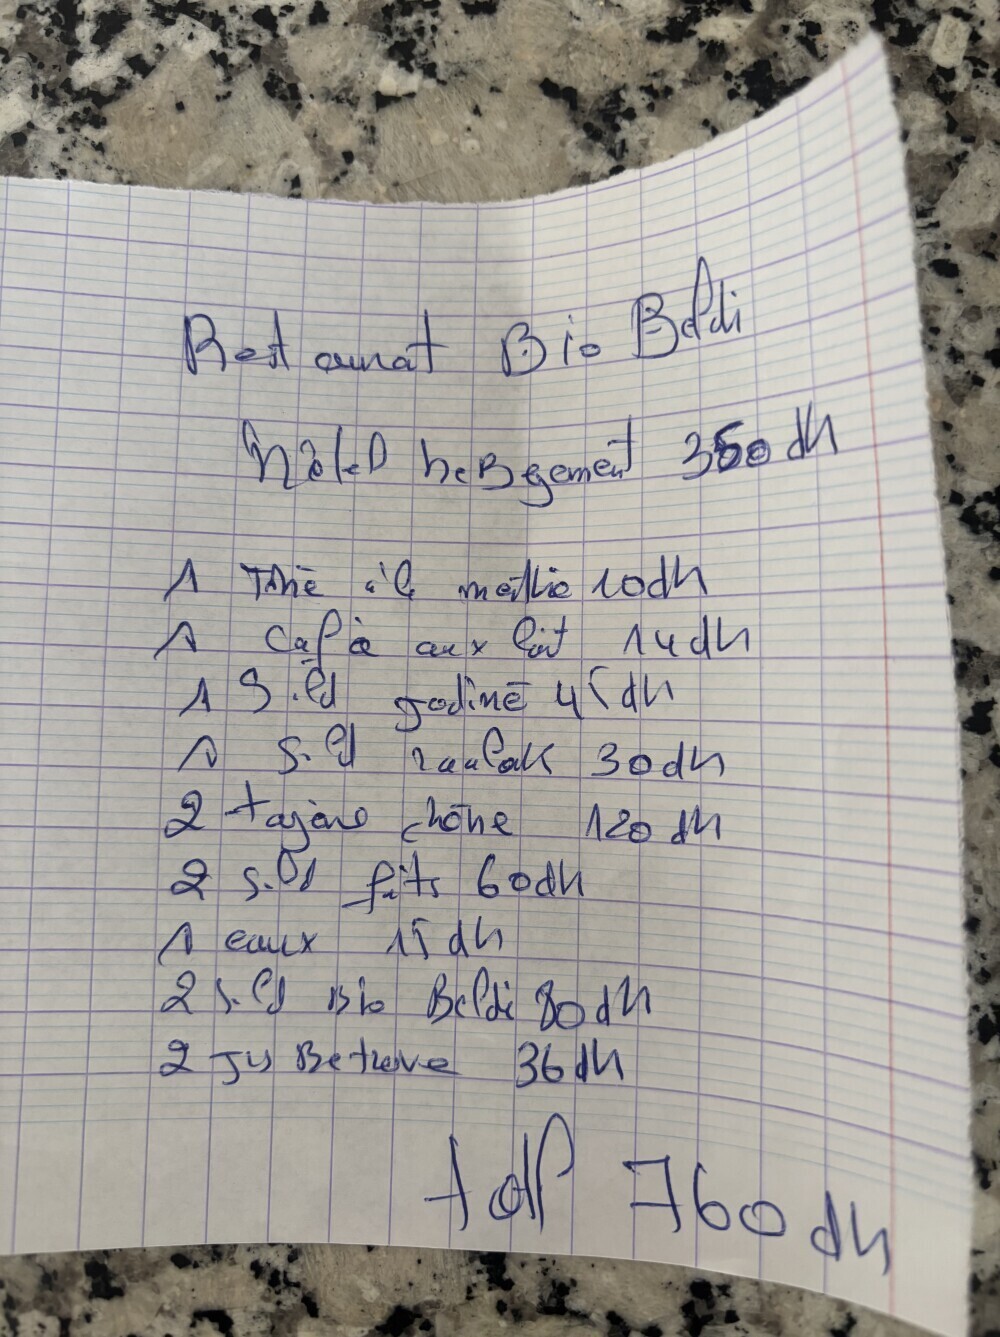 Restaurat Bio Beldi
hôtel hebergement 350 dh
1 Thé à la menthe 10dh
1 Café aux lait 14dh
1 S.ld jardiné 45dh
1 S.ld 30dh
2 tajéne 120 dh
2 S.ld fits 60dh
1 eaux 15 dh
2 S.ld Bio Beldi 80dh
2 Jus Betrave 36dh
totl 760 dh